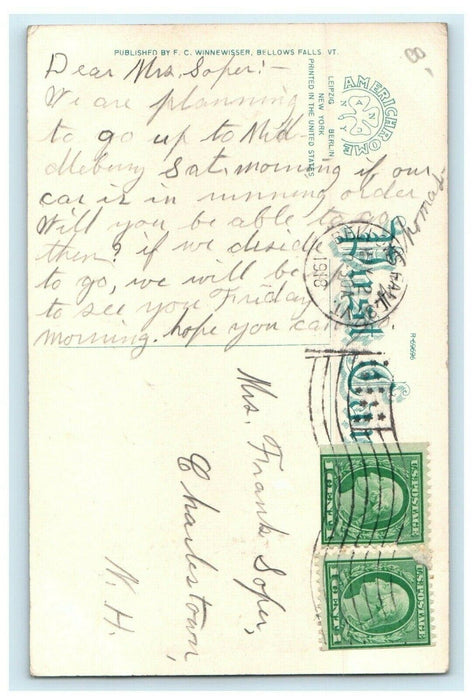 PUBLISHED BY F. C. WINNEWISSER, BELLOWS FALLS, VT.
Dear Mrs. Soper:-
We are planning
to go up to Mid-
dlebury Sat. morning if our
car is in running order
Will you be able to go
then? if we deside
to go, we will be in
to see you Friday
morning. hope you can.
Thomas
PRINTED IN THE UNITED STATES
LEIPZIG BERLIN
NEW YORK
AMERICHROME
A N C
N Y
Post Card
R-69696
1918
Mrs. Frank Soper,
Charlestown,
N. H.
U.S. POSTAGE
1 CENT 1
U.S. POSTAGE
1 CENT 1